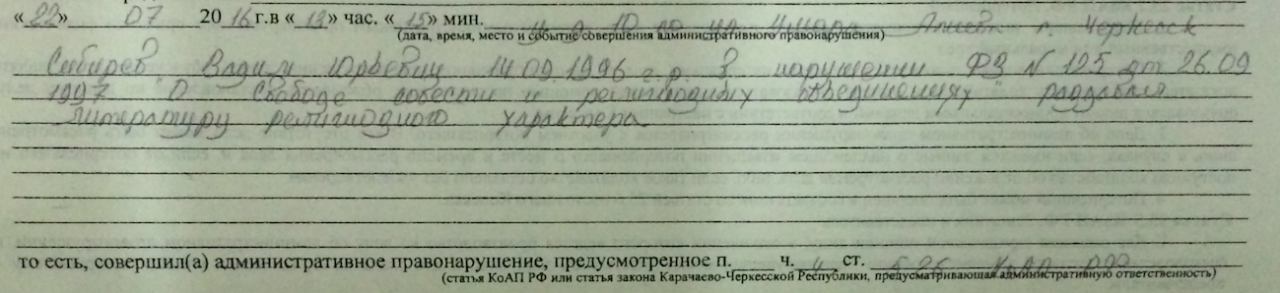 «22» 07 2016 г.в «13» час. «15» мин. у д 10 по ул Умара Алиева г. Черкесск
(дата, время, место и событие совершения административного правонарушения)
Сибирев Вадим Юрьевич 14.09.1996 г.р. в нарушении ФЗ N 125 от 26.09
1997 "О Свободе совести и религиозных объединениях" раздавал
литературу религиозного характера.
то есть, совершил(а) административное правонарушение, предусмотренное п. ч. 4 ст. 5.26 КоАП РФ
(статья КоАП РФ или статья закона Карачаево-Черкесской Республики, предусматривающая административную ответственность)